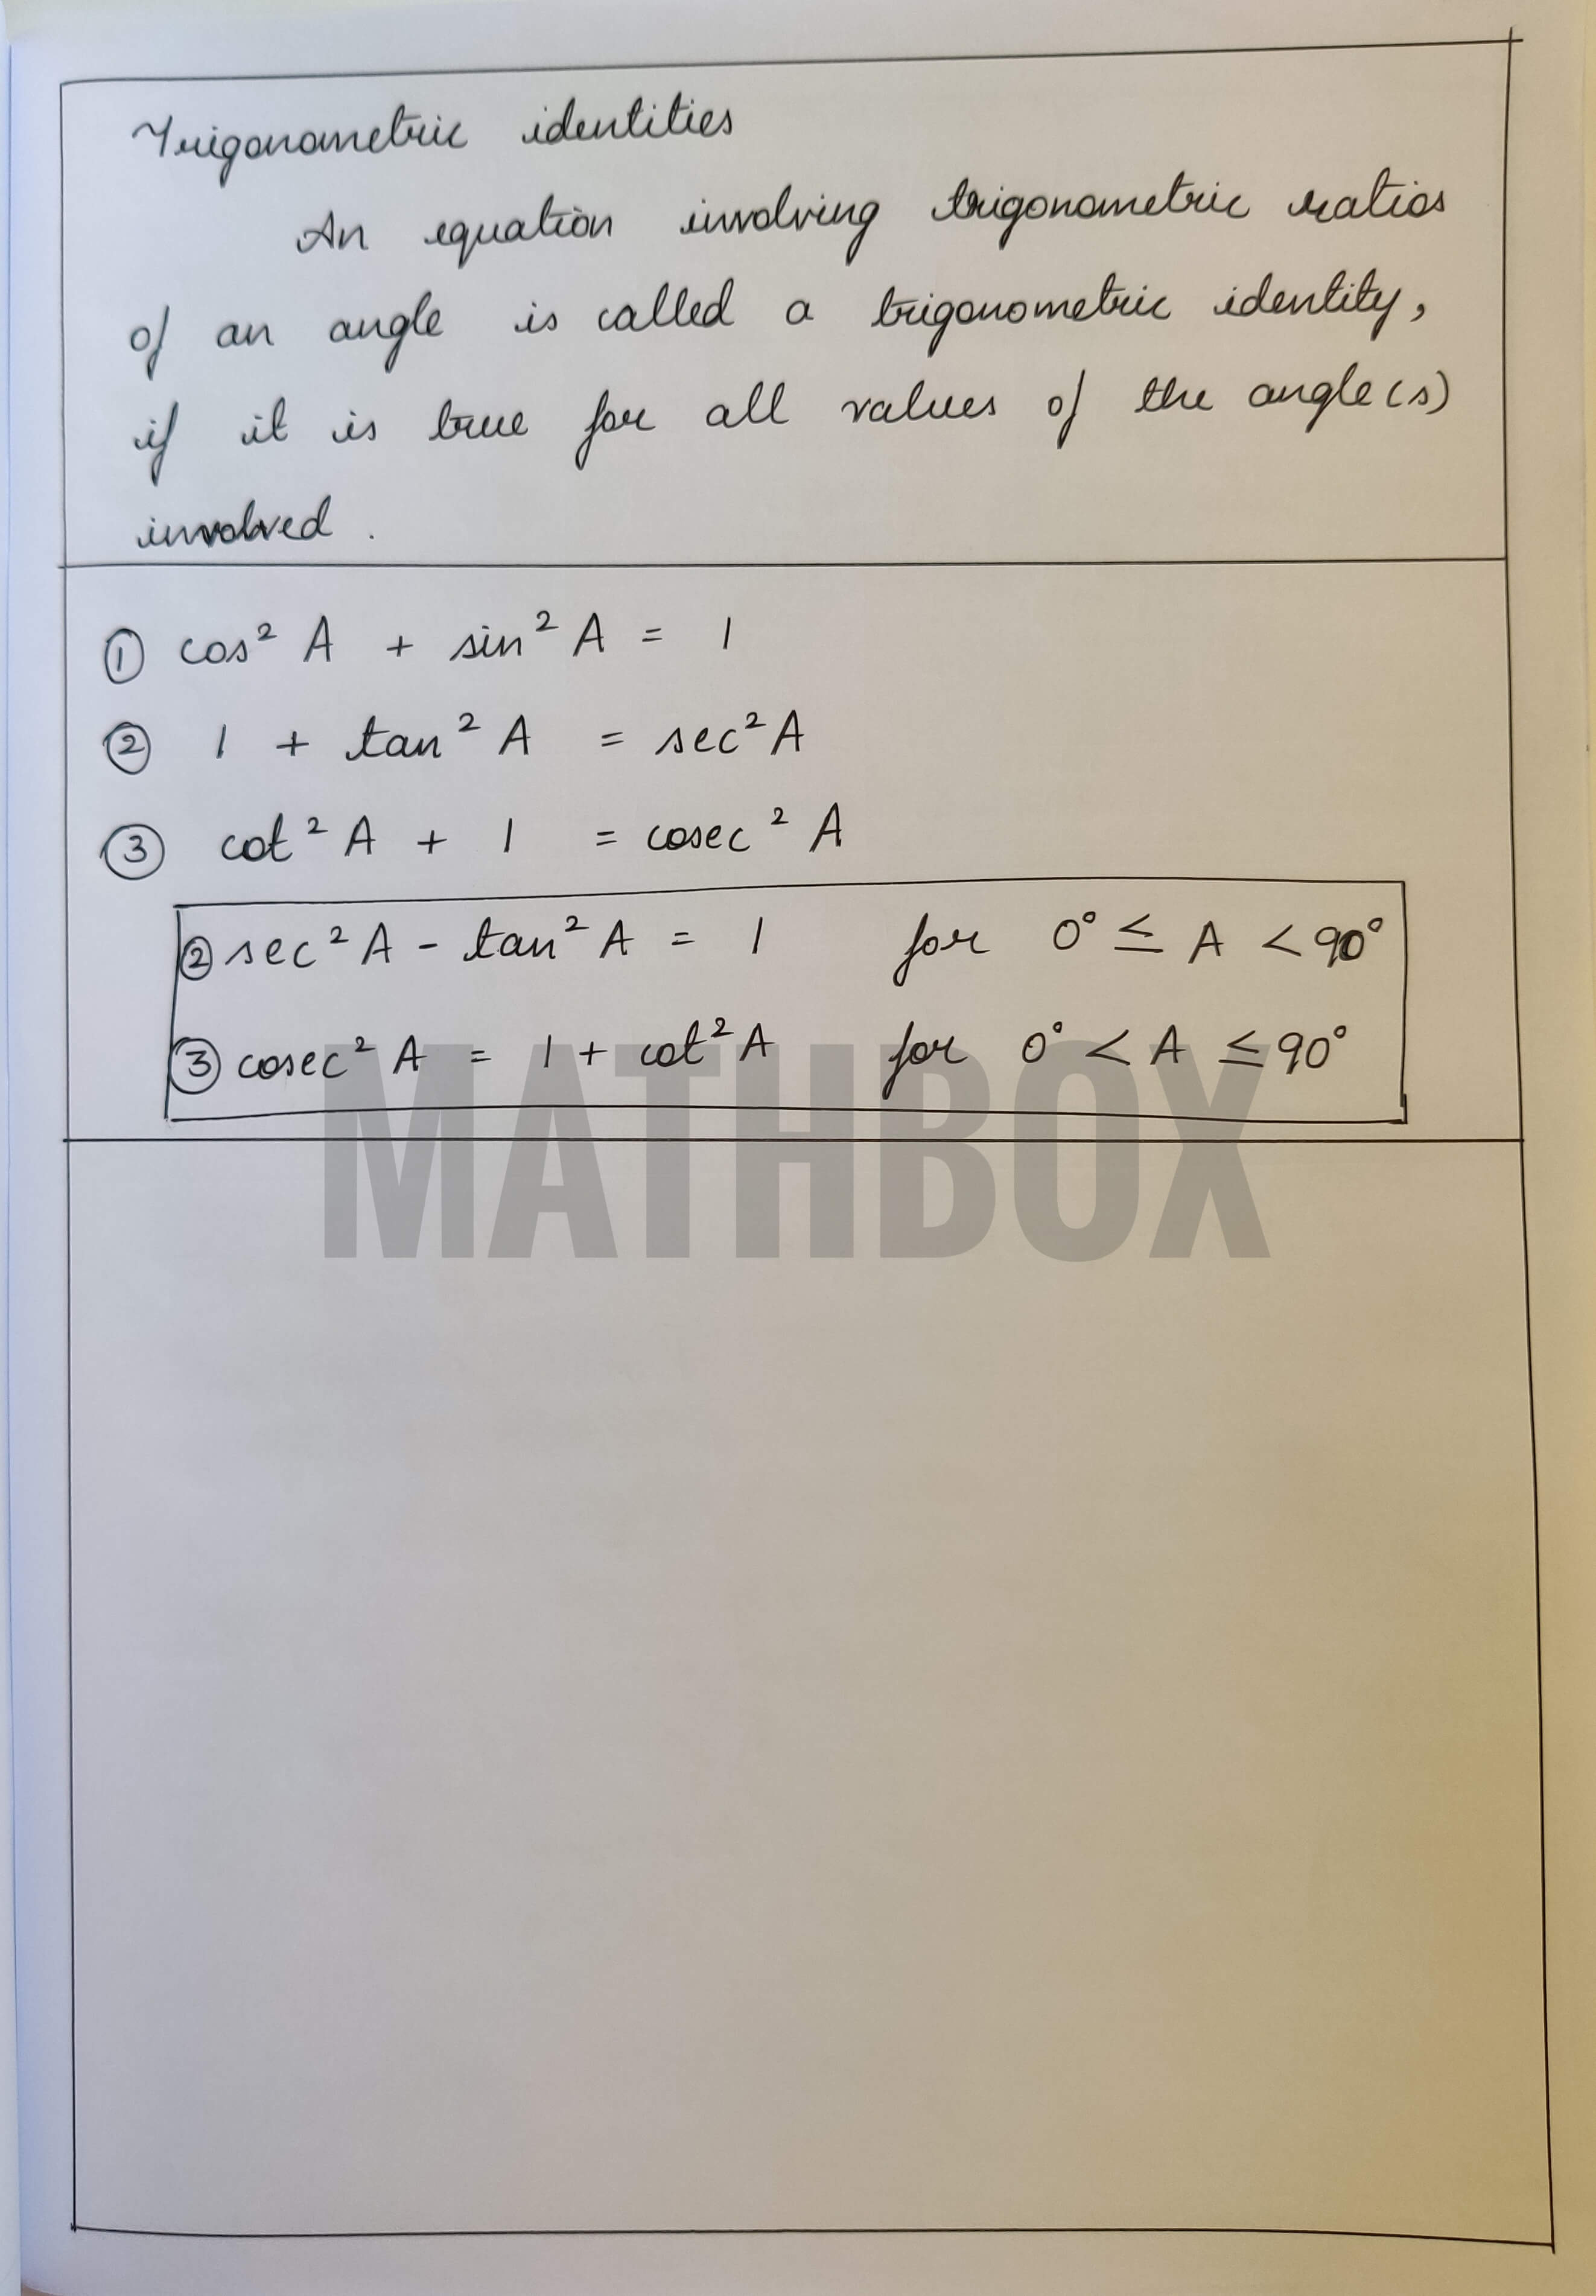 Trigonometric identities
An equation involving trigonometric ratios
of an angle is called a trigonometric identity,
if it is true for all values of the angle(s)
involved.
① cos² A + sin² A = 1
② 1 + tan² A = sec² A
③ cot² A + 1 = cosec² A
② sec² A - tan² A = 1 for 0° ≤ A < 90°
③ cosec² A = 1 + cot² A for 0° < A ≤ 90°
MATHBOX